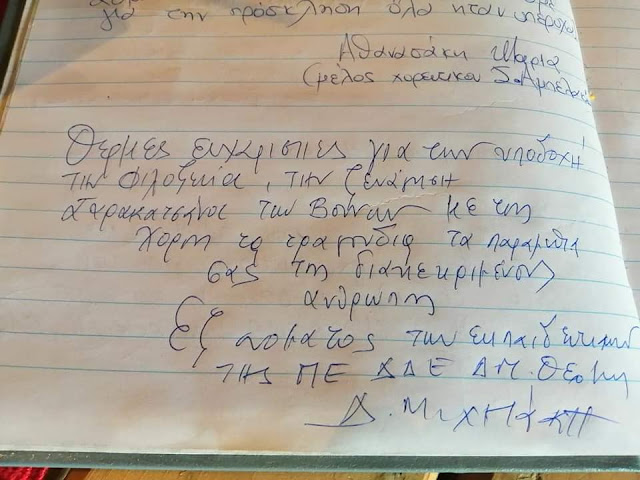 για την πρόσκληση όλα ήταν υπέροχα.
Αθανασάκη Μαρία
(μέλος χορευτικού Σ. Αμπελ
Θερμές ευχαριστίες για την υποδοχή
την φιλοξενία, την ξενάγηση
Σαρακατσάνος των Βουνών με τη
χορη τα τραγούδια τα παραμύθια
σας τη διακεκριμένου
ανθρώπη
Εξ ονόματος των εκπαιδευτικών
της ΠΕ ΔΔΕ